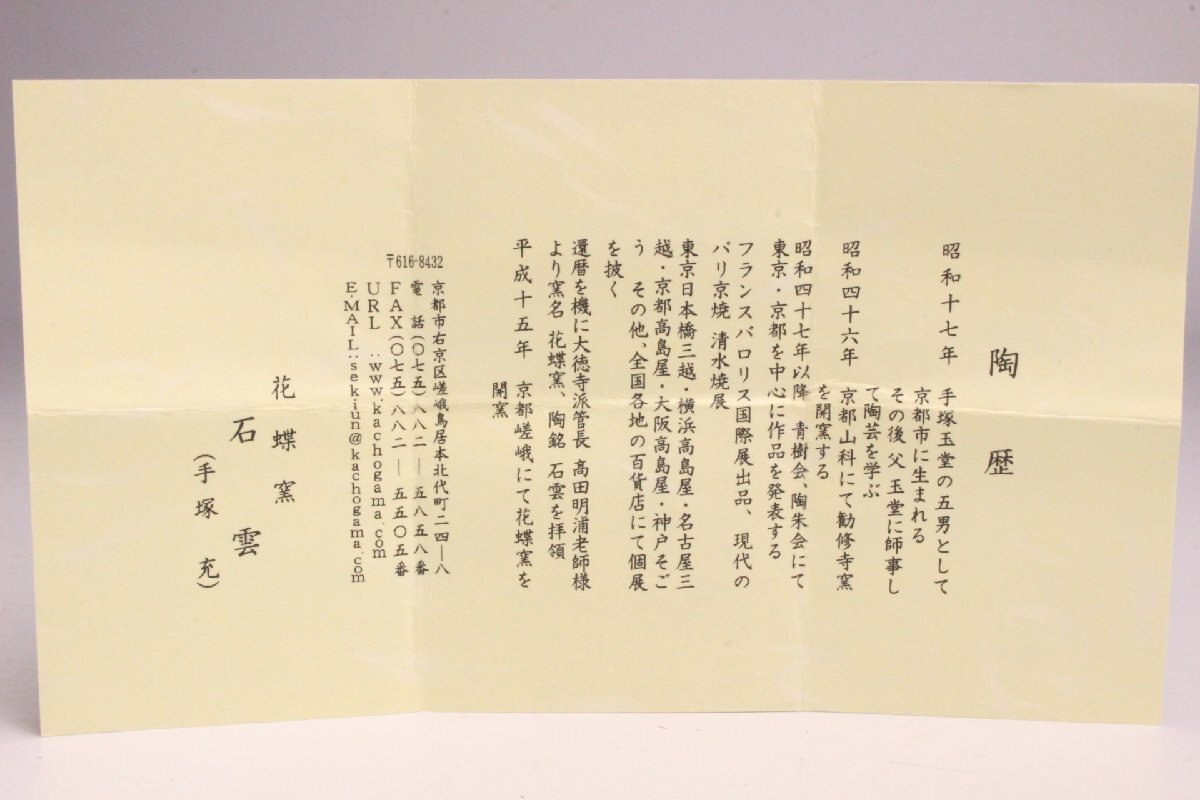 陶歴
昭和十七年 手塚玉堂の五男として
京都市に生まれる
その後 父 玉堂に師事し
て陶芸を学ぶ
昭和四十六年 京都山科にて勧修寺窯
を開窯する
昭和四十七年以降 青樹会、陶朱会にて
東京・京都を中心に作品を発表する
フランスバロリス国際展出品、現代の
パリ京焼 清水焼展
東京日本橋三越・横浜高島屋・名古屋三
越・京都高島屋・大阪高島屋・神戸そご
う その他、全国各地の百貨店にて個展
を披く
還暦を機に大徳寺派管長 高田明浦老師様
より窯名 花蝶窯、陶銘 石雲を拝領
平成十五年 京都嵯峨にて花蝶窯を
開窯
〒616-8432
京都市右京区嵯峨鳥居本北代町二四―八
電 話(〇七五)八八二―五八五八番
FAX(〇七五)八八二―五五〇五番
URL :www.kachogama.com
E-MAIL:sekiun@kachogama.com
花蝶窯
石雲
(手塚 充)